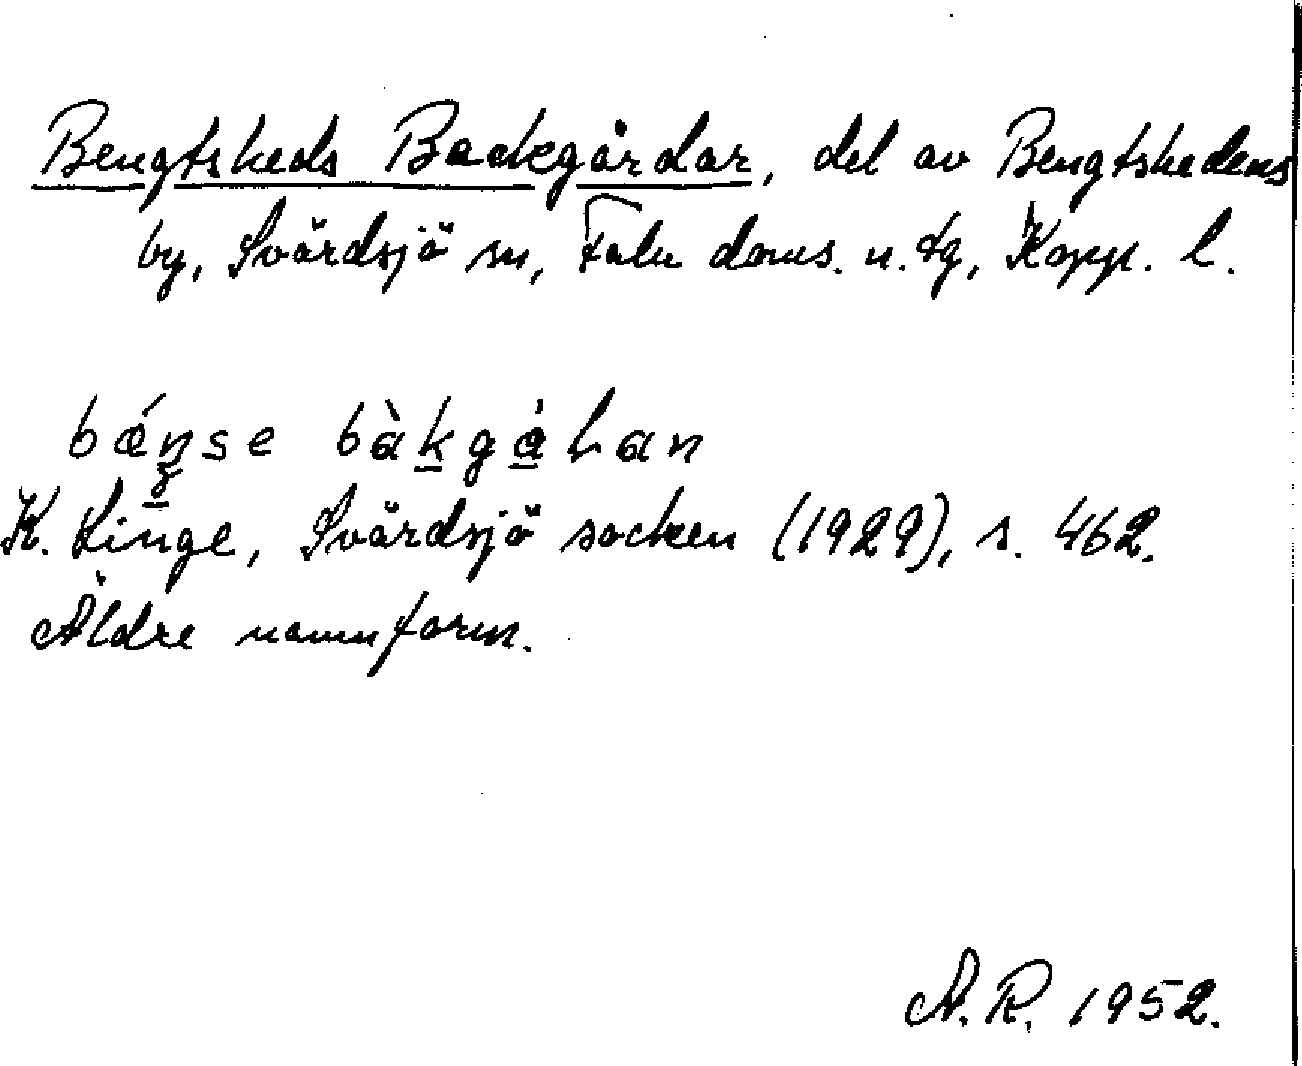 Bengtsheds Backgårdar, del av Bengtshedens
by, Svärdsjö sn, Falu doms. n. tg, Kopp. l.
bǽn̠se bàk̲gå̲̀Lan
K. Linge, Svärdsjö socken (1929), s. 462.
Äldre namnform.
A. R. 1952.